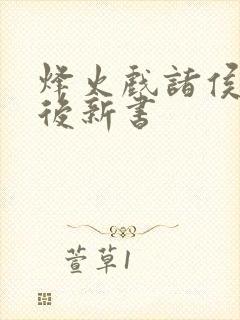 烽火戲諸侯
後新書
萱草1